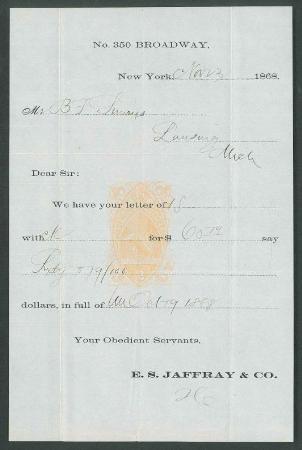 No. 350 BROADWAY.
New York, Nov 23 1868.
Mr B T
Lansing
Mich
Dear Sir:
We have your letter of 18
with ck for $ 60 79 say
Sixty 79/100
dollars, in full of 1868
Your Obedient Servants,
E. S. JAFFRAY & CO.